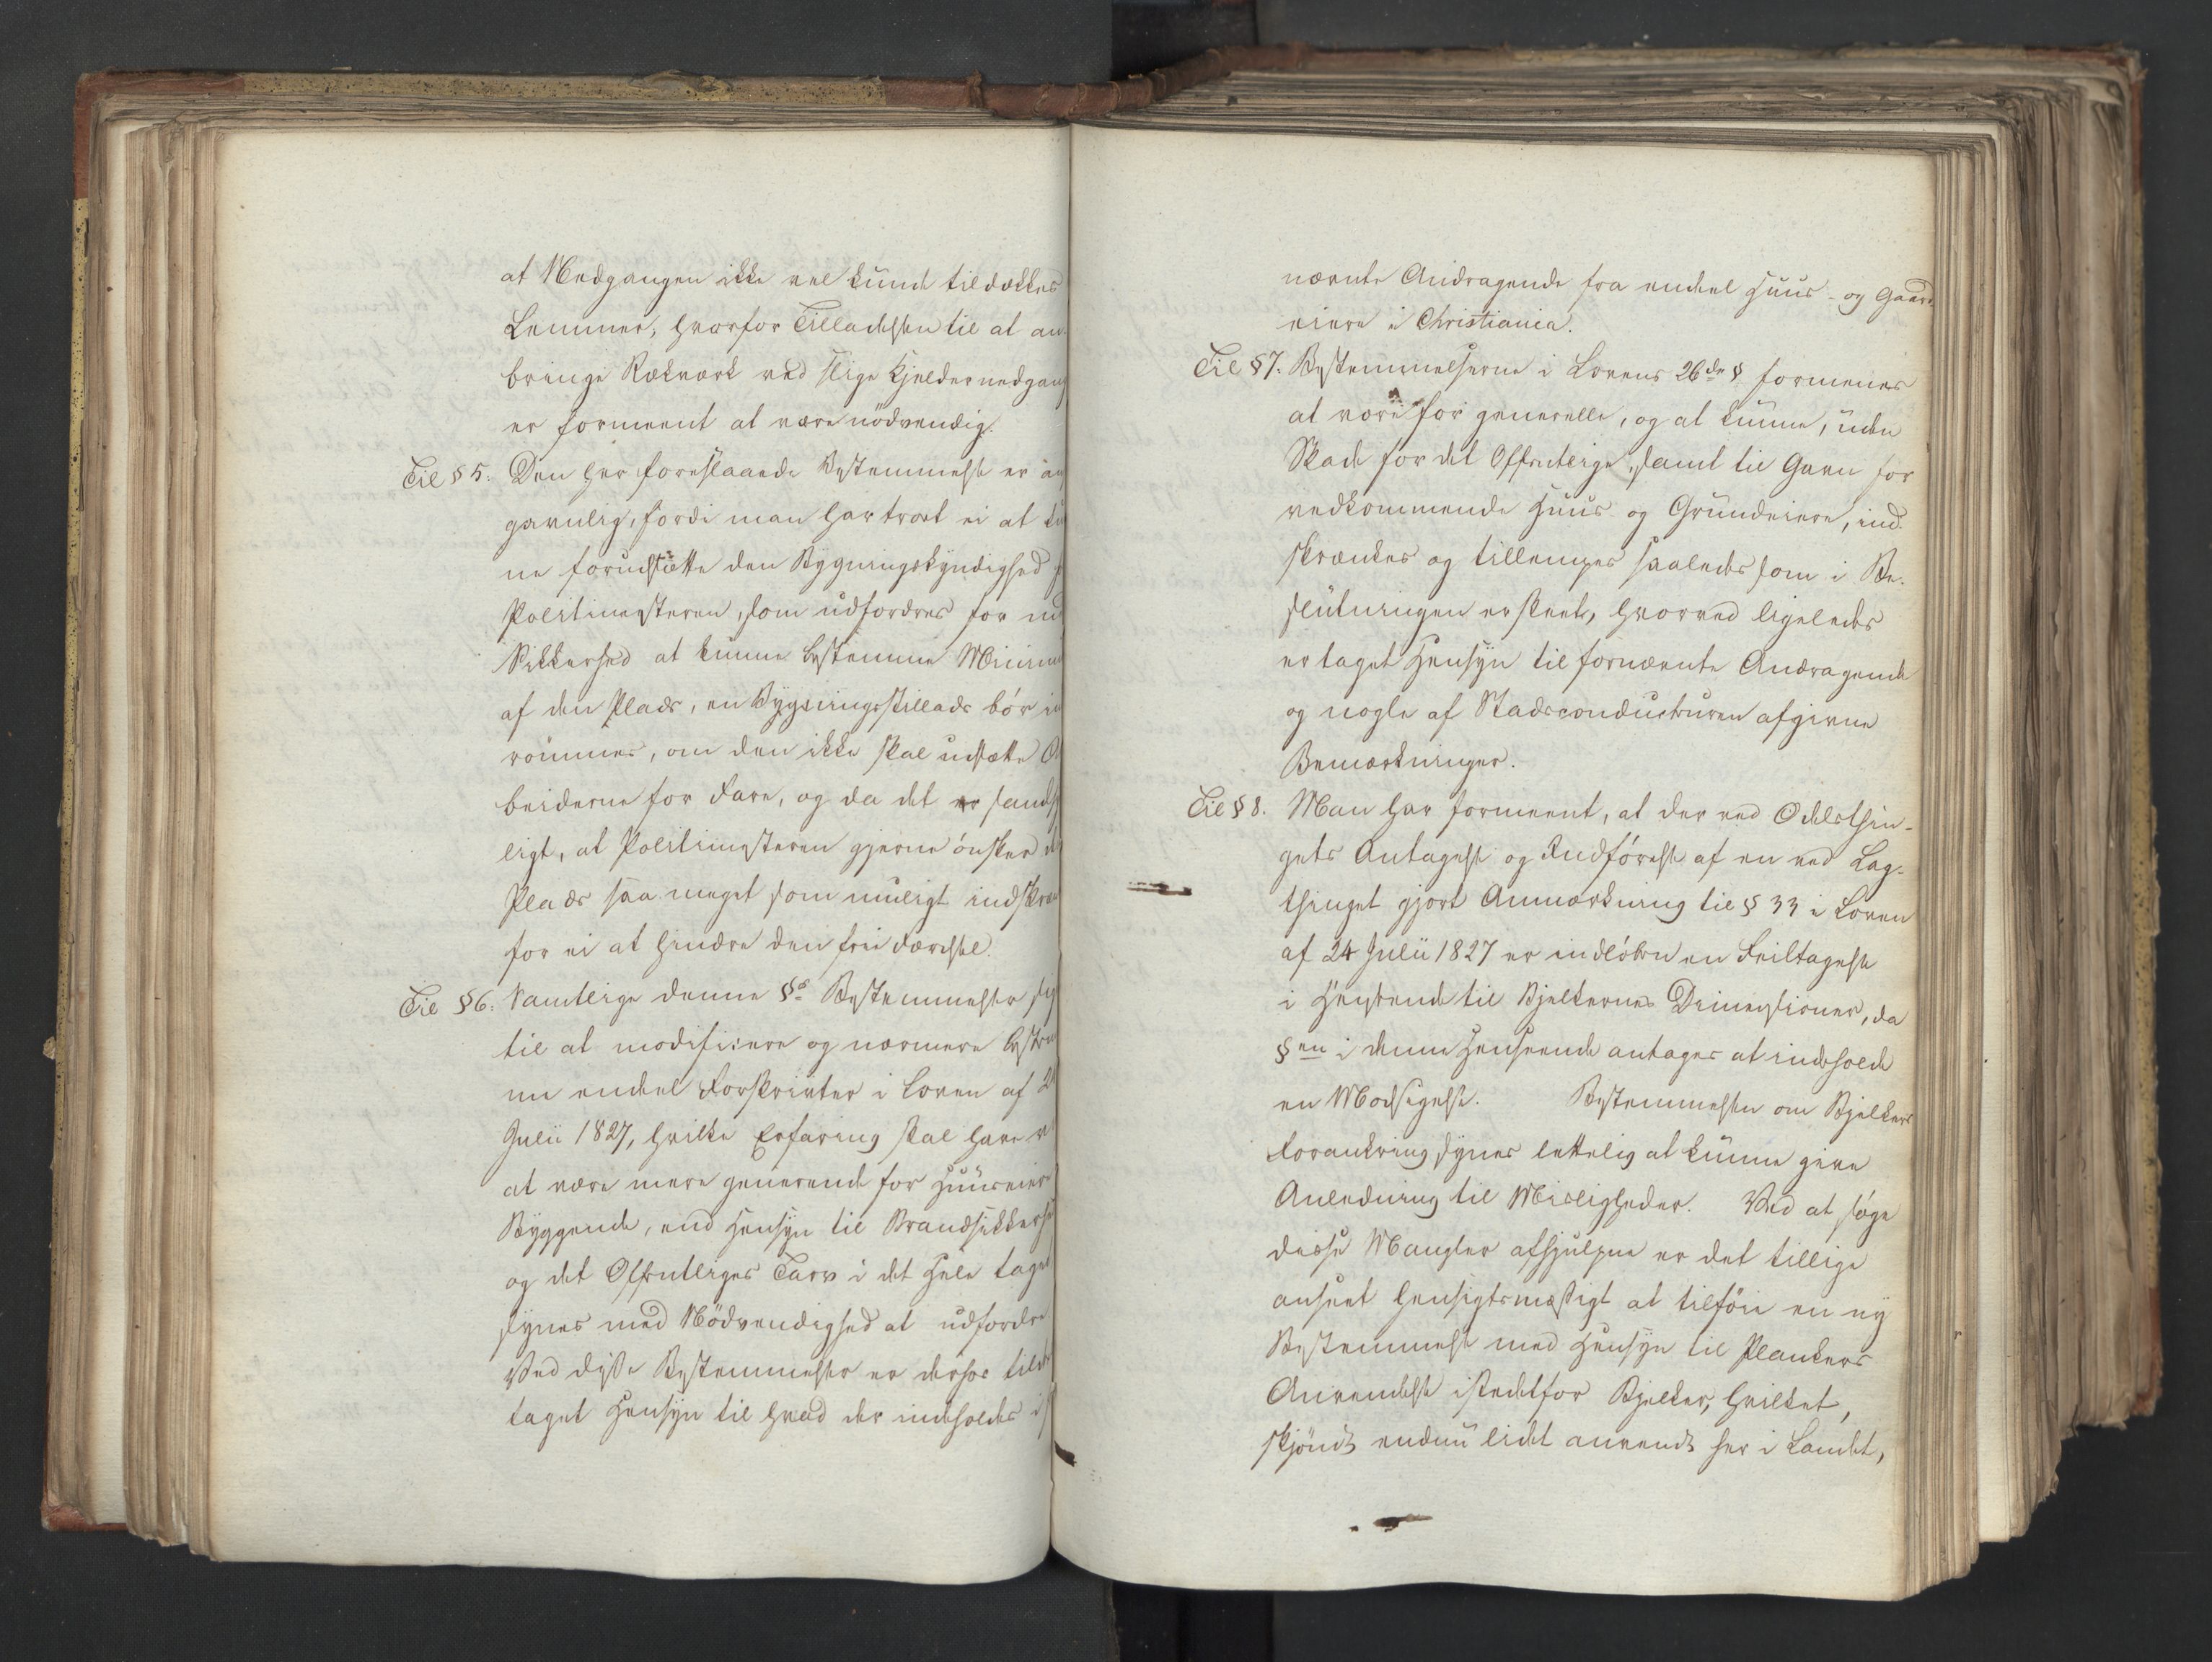 at Nedgangen ikke vel kunde tildækkes
Lemmer, hvorfor Tilladelsen til at an-
bringe Rækværk ved slige Kjeldernedgang
er formeent at være nödvendig.
Til § 5. Den her foreslaaede Bestemmelse er an
gavnlig, fordi man har troet ei at kun
ne forudsætte den Bygningskyndighed
Politimesteren, som udfordres for med
Sikkerhed at kunne bestemme Minimum
af den Plads, en Bygningsstillads bör in
römmes, om den ikke skal udsætte
beiderne for Fare, og da det er sands
ligt, at Politimesteren gjerne önsker
Plads saa meget som muligt indskræn
for ei at hindre den frie Færdsel.
Til § 6: Samtlige denne §s Bestemmelser sig
til at modificere og nærmere bestem
me endeel Forskrivter i Loven af 24
Julii 1827, hvilke Erfaring skal have
at være mere generende for Huuseiere
Byggende, end Hensyn til Brandsikkerhe
og det Offentliges Tarv i det Hele taget
synes med Nödvendighed at udfordre
Ved disse Bestemmelser er derfor tild
taget Hensyn til hvad der indeholdes i
nævnte Andragende fra endeel Huus- og Gaard-
eiere i Christiania.
Til § 7. Bestemmelserne i Lovens 26de § formenes
at være for generelle, og at kunne, uden
Skade for det Offentlige, samt til Gavn for
vedkommende Huus- og Grundeiere, ind-
skrænkes og tillempes saaledes som i Be-
slutningen er skeet, hvorved ligeledes
er taget Hensyn til fornævnte Andragende
og nogle af Stadsconducteuren afgivne
Bemærkninger.
Til § 8. Man har formeent, at der ved Odelsthin-
gets Antagelse og Indförelse af en ved Lag-
thinget gjort Anmærkning til § 33 i Loven
af 24 Julii 1827 er indlöben en Feiltagelse
i Henseende til Bjelkernes Dimensioner, da
§en i denne Henseende antages at indeholde
en Modsigelse. Bestemmelsen om Bjelkers
Forankring synes lettelig at kunne give
Anledning til Misligheder. Ved at söge
disse Mangler afhjulpne er det tillige
anseet hensigtsmæssigt at tilföie en ny
Bestemmelse med Hensyn til Plankers
Anvendelse istedetfor Bjelker, hvilket,
skjöndt endnu lidet anvendt her i Landet,